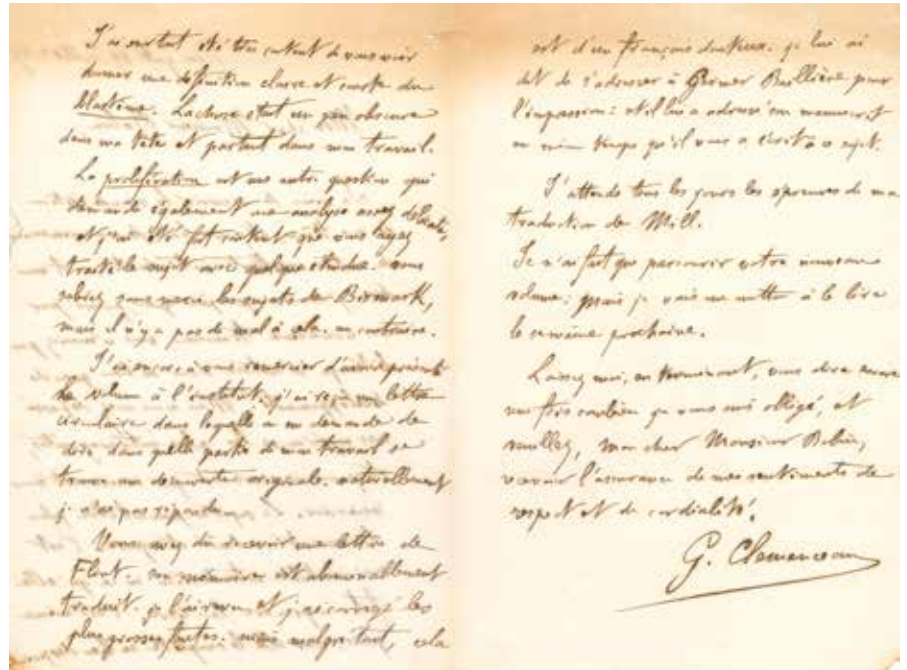 J'ai surtout été très content de vous voir
donner une définition claire et courte du
blastème. La chose était un peu obscure
dans ma tête et partant dans mon travail.
La prolifération est une autre question qui
demande également une analyse assez délicate,
et j'ai été fort content que vous ayez
traité le sujet avec quelque étendue. Vous
sabrez sans merci les sujets de Bismark,
mais il n'y a pas de mal à cela. au contraire.
J'ai encore à vous remercier d'avoir présenté
le volume à l'institut. j'ai reçu une lettre
circulaire dans laquelle on me demande de
dire dans quelle partie de mon travail se
trouve une découverte originale. naturellement
je n'ai pas répondu.
Vous avez du recevoir une lettre de
Flint. son mémoire est abominablement
traduit. je l'ai revu et j'ai corrigé les
plus grosses fautes. mais malgré tout, cela
est d'un français douteux. je lui ai
dit de s'adresser à Germer Baillière pour
l'impression: et il lui a adressé son manuscrit
en même temps qu'il vous a écrit à ce sujet.
J'attends tous les jours les épreuves de ma
traduction de Mill.
Je n'ai fait que parcourir votre nouveau
volume: mais je vais me mettre à le lire
la semaine prochaine.
Laissez moi, en terminant, vous dire encore
une fois combien je vous suis obligé, et
veuillez, mon cher Monsieur Robin,
recevoir l'assurance de mes sentiments de
respect et de cordialité.
G. Clemenceau